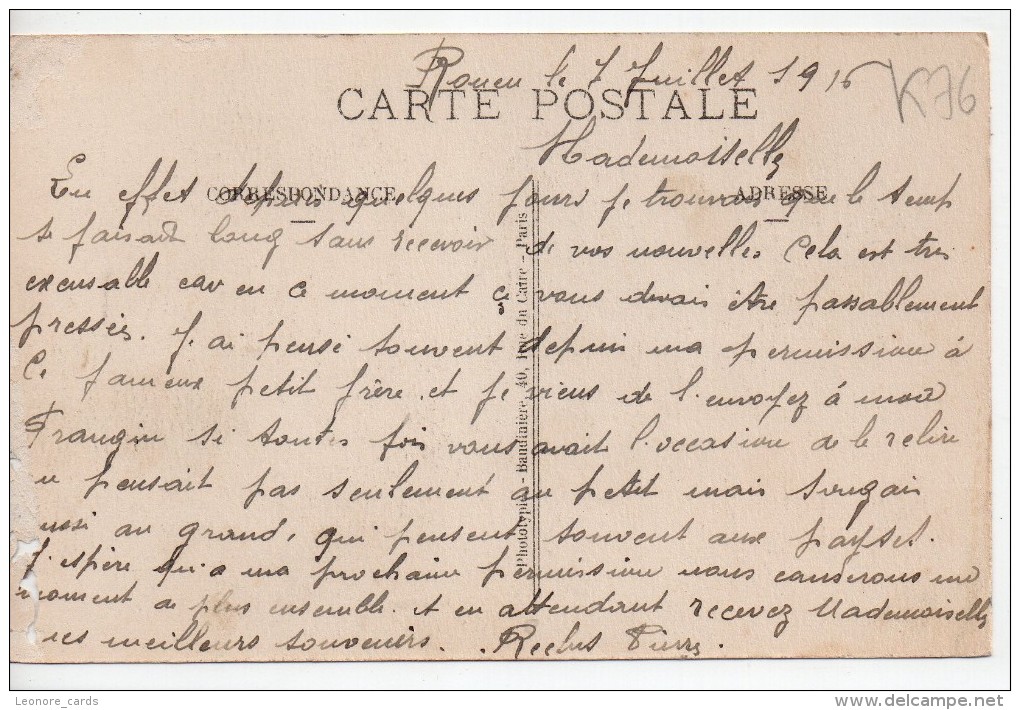 Rouen le 7 Juillet 1916
K76
CARTE POSTALE
Mademoiselle
CORRESPONDANCE
ADRESSE
En effet depuis quelques jours je trouvais que le temp
se faisait long sans recevoir de vos nouvelles Cela est tres
excusable car en ce moment ç vous devais être passablement
pressés. J ai pensé souvent depuis ma permission à
Ce fameux petit frère et je viens de l envoyez à mon
Frangin si toutes fois vous avait l'occasion de le relire
pensait pas seulement au petit mais songais
ussi au grand, qui pensent souvent aux payses.
J'espère qu'a ma prochaine permission nous causerons un
moment de plus ensemble. et en attendant recevez Mademoiselle
mes meilleurs souvenirs. Reclus Pierre
Phototypie - Baudinière, 40, Rue du Caire - Paris
Leonore_cards
www.delcampe.net